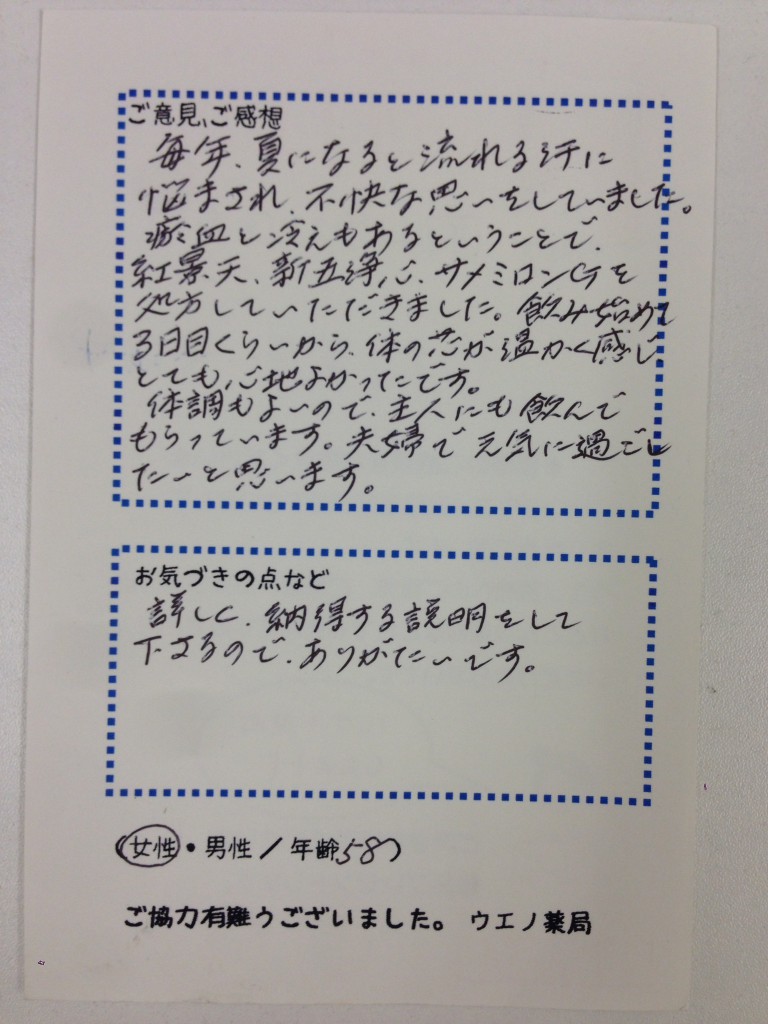 ご意見、ご感想
毎年、夏になると流れる汗に
悩まされ、不快な思いをしていました。
瘀血と冷えもあるということで、
紅景天、新五浄心、サメミロンGTを
処方していただきました。飲み始めて
3日目くらいから、体の芯が温かく感じ、
とても心地よかったです。
体調もよいので、主人にも飲んで
もらっています。夫婦で元気に過ごし
たいと思います。
お気づきの点など
詳しく、納得する説明をして
下さるので、ありがたいです。
(女性・男性/年齢58)
ご協力有難うございました。 ウエノ薬局